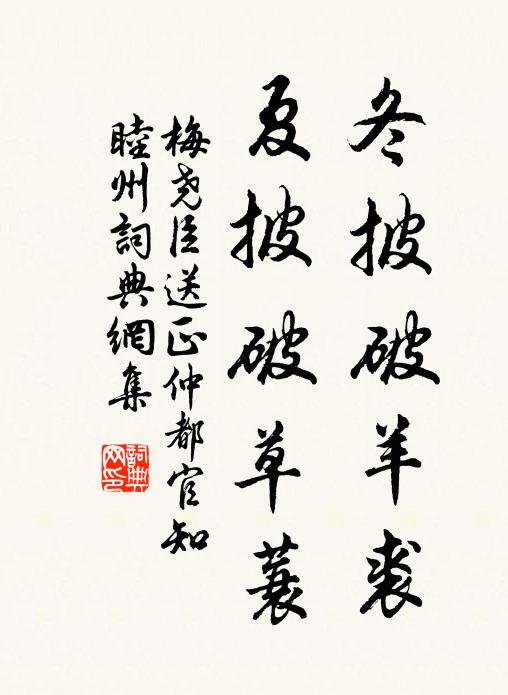 冬披破羊裘
夏披破草蓑
梅尧臣送正仲都官知
睦州詞典網集
詞典
网印